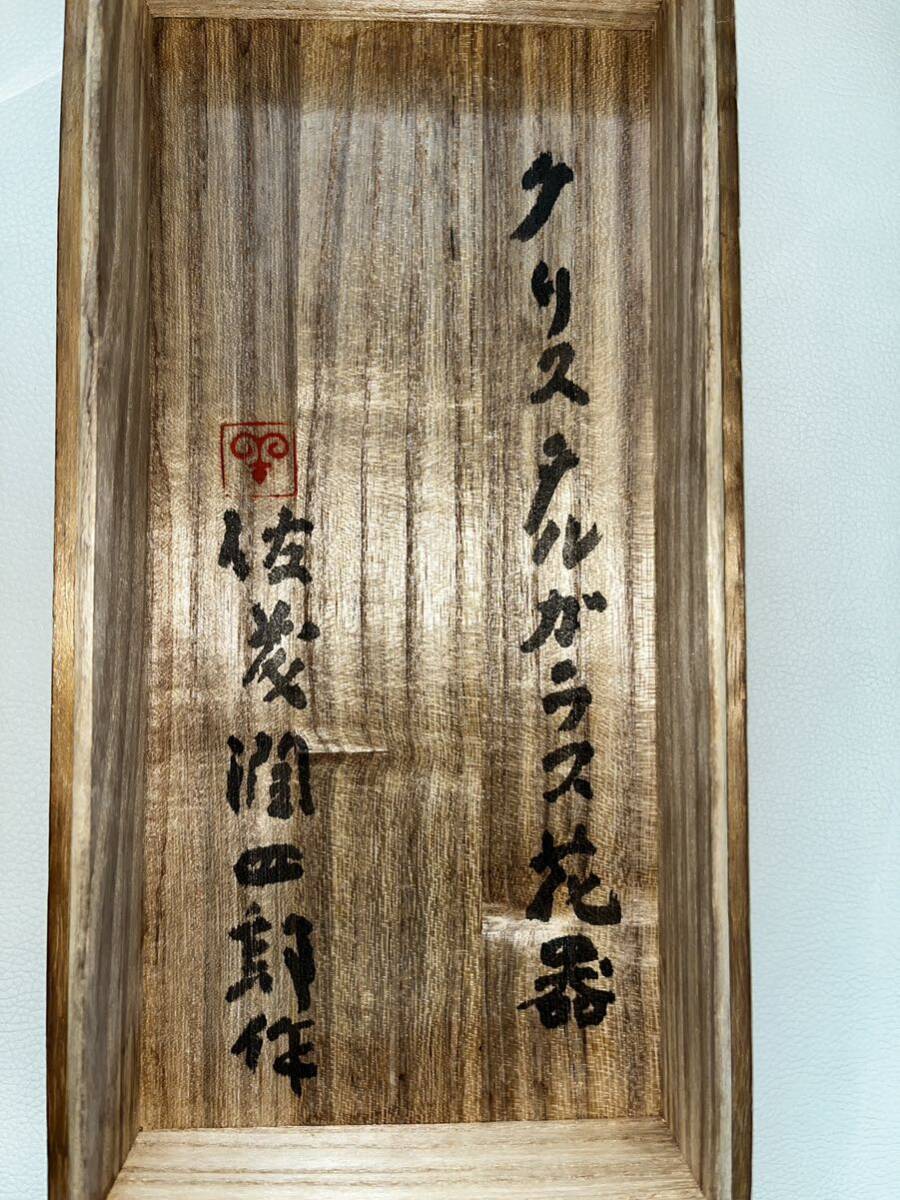 クリステルガラス花器
佐茂潤四郎作